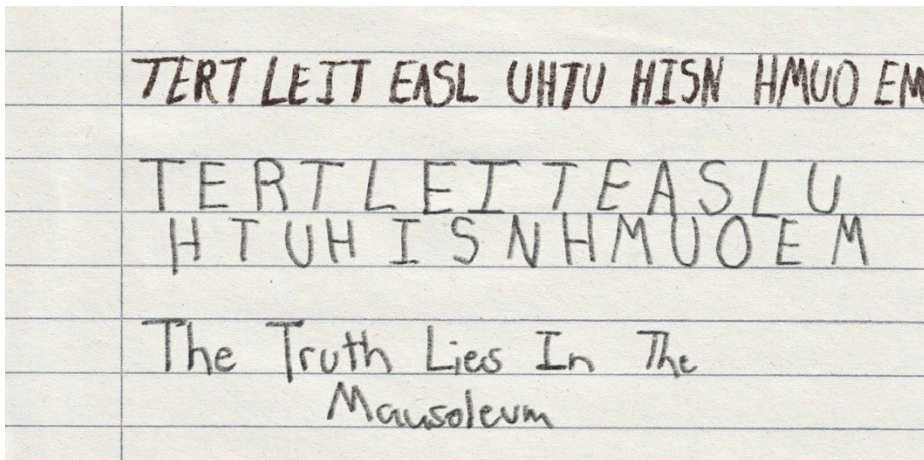 TERT LEIT EASL UHTU HISN HMUO EM
TERTLEITEASLU
HTUHISNHMUOEM
The Truth Lies In The
Mausoleum